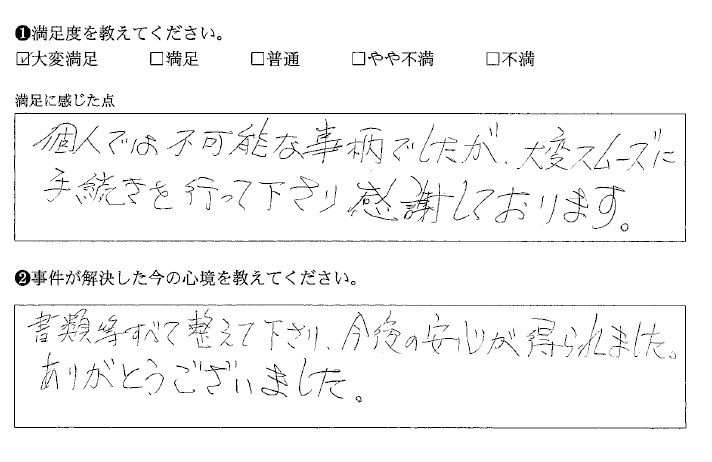 ❶満足度を教えてください。
☑大変満足 □満足 □普通 □やや不満 □不満
満足に感じた点
個人では不可能な事柄でしたが、大変スムーズに
手続きを行って下さり感謝しております。
❷事件が解決した今の心境を教えてください。
書類等すべて整えて下さり、今後の安心が得られました。
ありがとうございました。